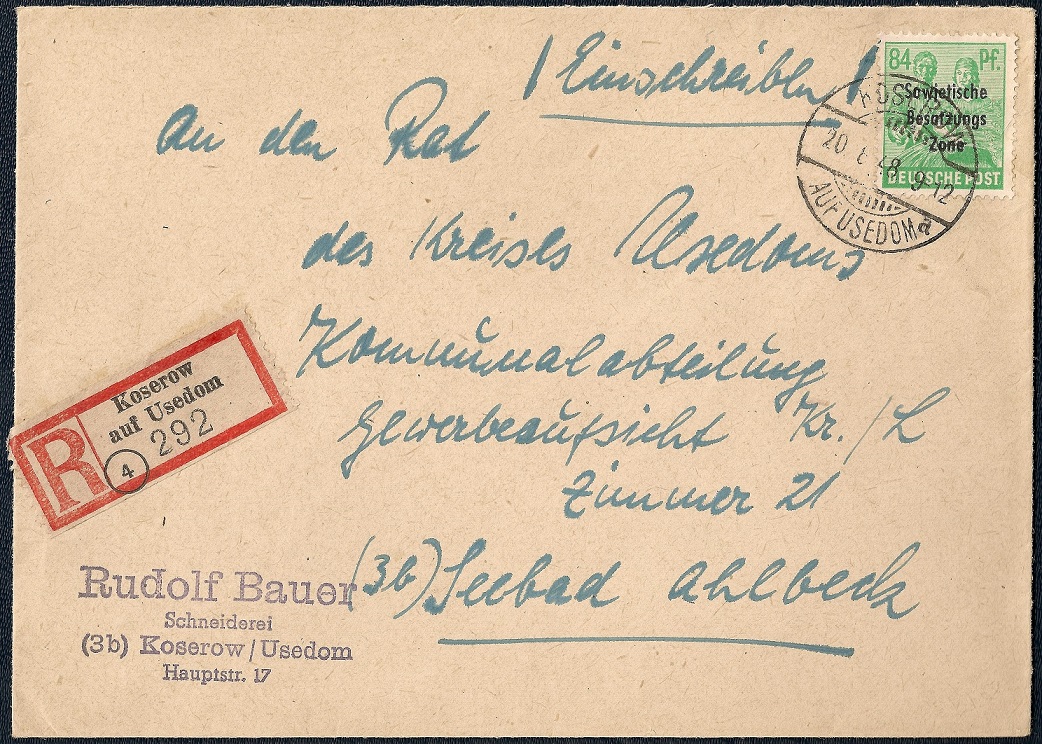 ! Einschreiben !
84 Pf.
Sowjetische
Besatzungs
Zone
DEUTSCHE POST
KOSEROW
20. 8. 48 9-12
AUF USEDOM a
An den Rat
des Kreises Usedoms
Kommunalabteilung
Gewerbeaufsicht Kr./L
Zimmer 21
(3b) Seebad Ahlbeck
Koserow
auf Usedom
R
4
292
Rudolf Bauer
Schneiderei
(3b) Koserow/Usedom
Hauptstr. 17